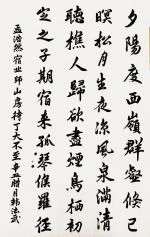 夕陽度西嶺群壑倏已
暝松月生夜涼風泉滿清
聽樵人歸欲盡煙鳥棲初
定之子期宿來孤琴候蘿徑
孟浩然宿業師山房待丁大不至辛丑腊月韩法武